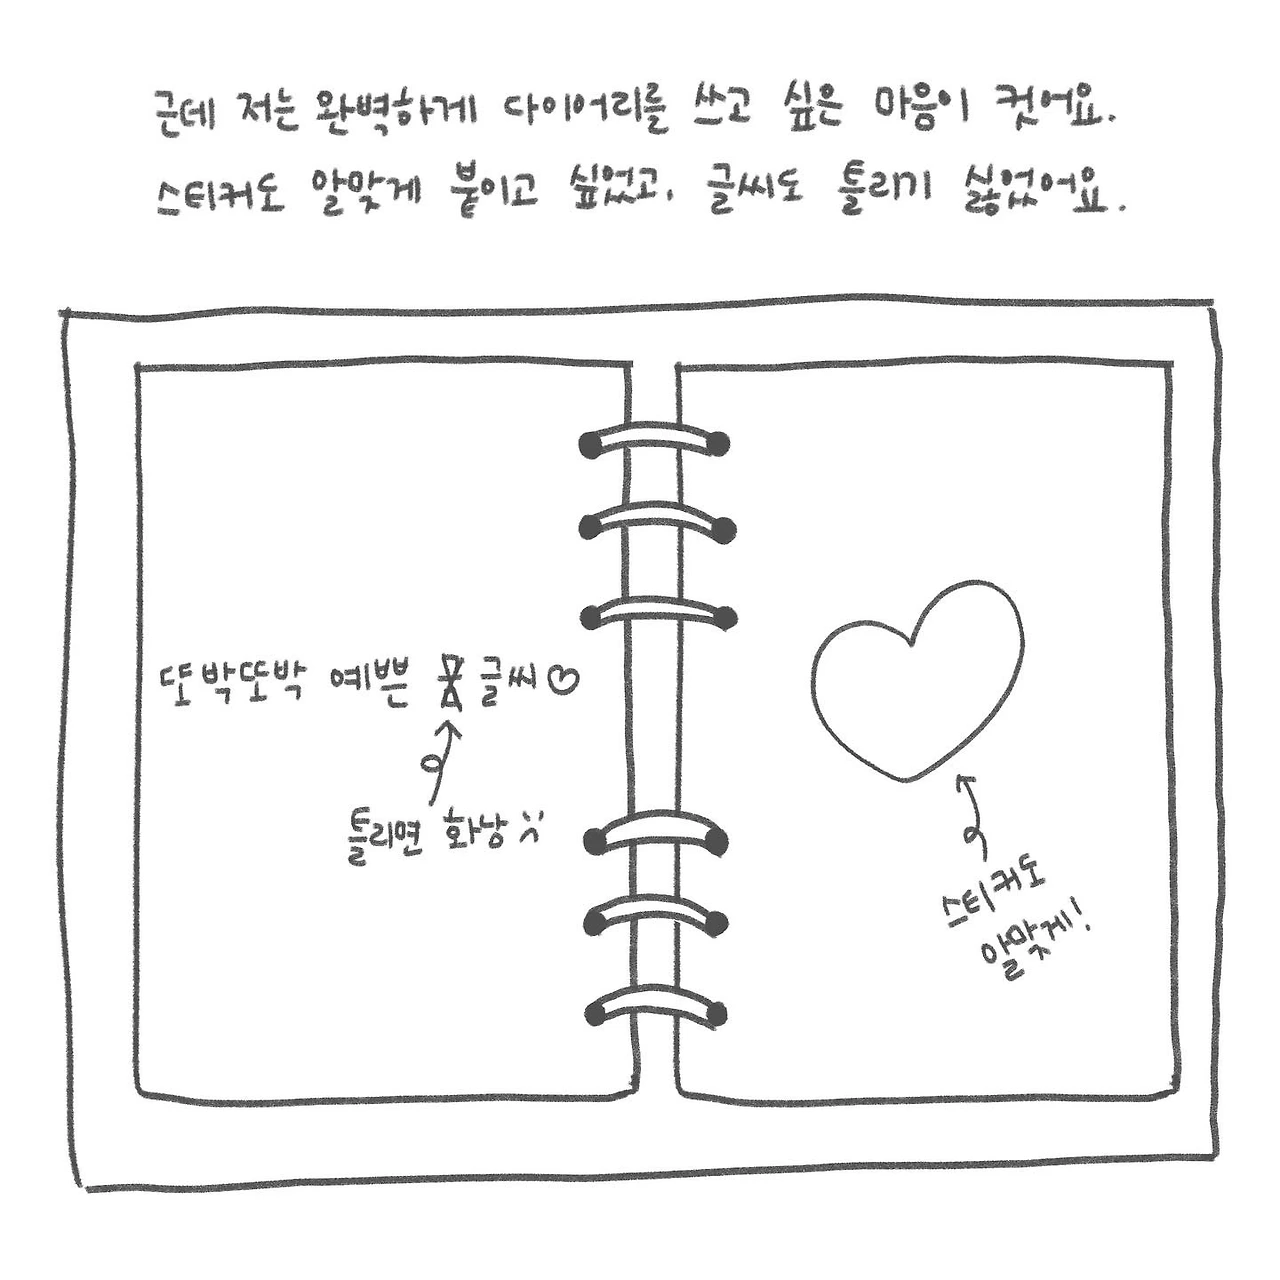 근데 저는 완벽하게 다이어리를 쓰고 싶은 마음이 컷어요.
스티커도 알맞게 붙이고 싶었고, 글씨도 틀리기 싫었어요.
또박또박 예쁜 글씨♡
틀리면 화남 :(
스티커도
알맞게!